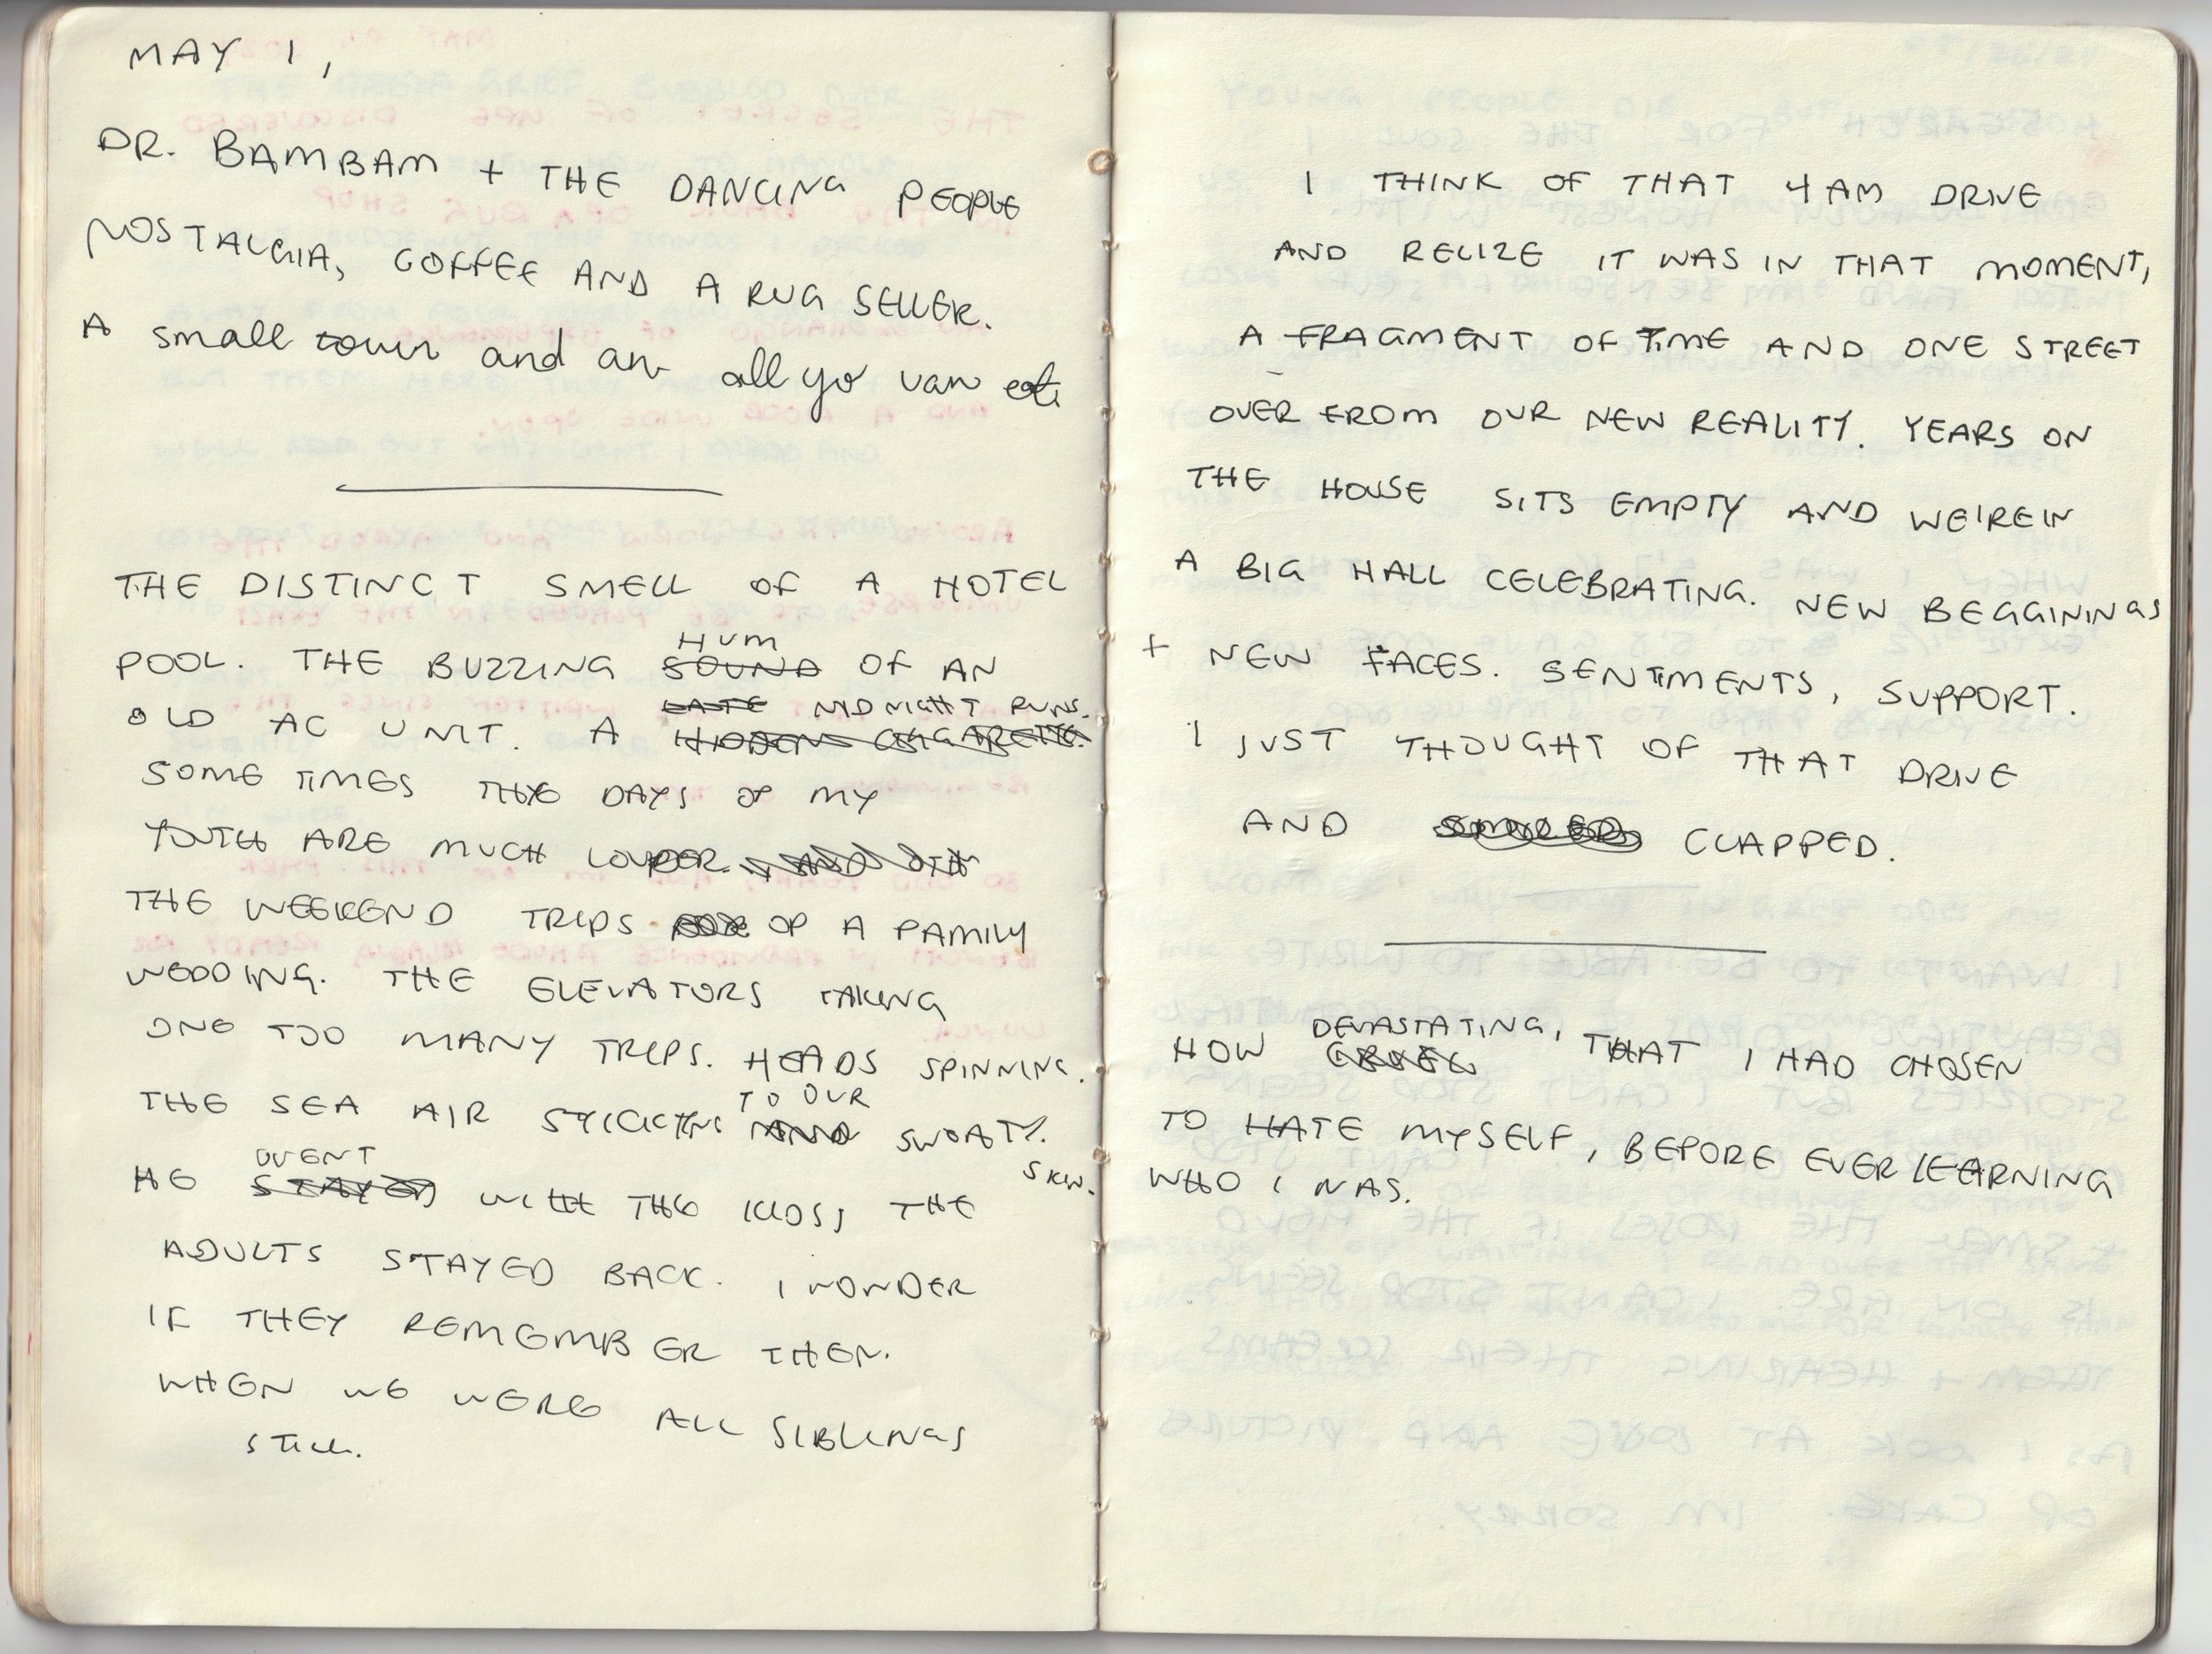 MAY 1,
DR. BAMBAM + THE DANCING PEOPLE
NOSTALGIA, COFFEE AND A RUG SELLER.
A small town and an all yo van eat
THE DISTINCT SMELL OF A HOTEL
HUM
POOL. THE BUZZING SOUND OF AN
LATE MIDNIGHT RUNS.
OLD AC UNIT. A HIDDEN CIGARETTE.
SOME TIMES THE DAYS OF MY
YOUTH ARE MUCH LOUDER.
THE WEEKEND TRIPS FOR OF A FAMILY
WEDDING. THE ELEVATORS TAKING
ONE TOO MANY TRIPS. HEADS SPINNING.
TO OUR
THE SEA AIR STICKING AND SWEATY.
SKIN.
WENT
HE STAYED WITH THE KIDS, THE
ADULTS STAYED BACK. I WONDER
IF THEY REMEMBER THEN.
WHEN WE WERE ALL SIBLINGS
STILL.
I THINK OF THAT 4 AM DRIVE
AND RELIZE IT WAS IN THAT MOMENT,
A FRAGMENT OF TIME AND ONE STREET
OVER FROM OUR NEW REALITY. YEARS ON
THE HOUSE SITS EMPTY AND WE'RE IN
A BIG HALL CELEBRATING. NEW BEGGININGS
+ NEW FACES. SENTIMENTS, SUPPORT.
I JUST THOUGHT OF THAT DRIVE
AND SMILED CLAPPED.
DEVASTATING,
HOW CRUEL THAT I HAD CHOSEN
TO HATE MYSELF, BEFORE EVER LEARNING
WHO I WAS.